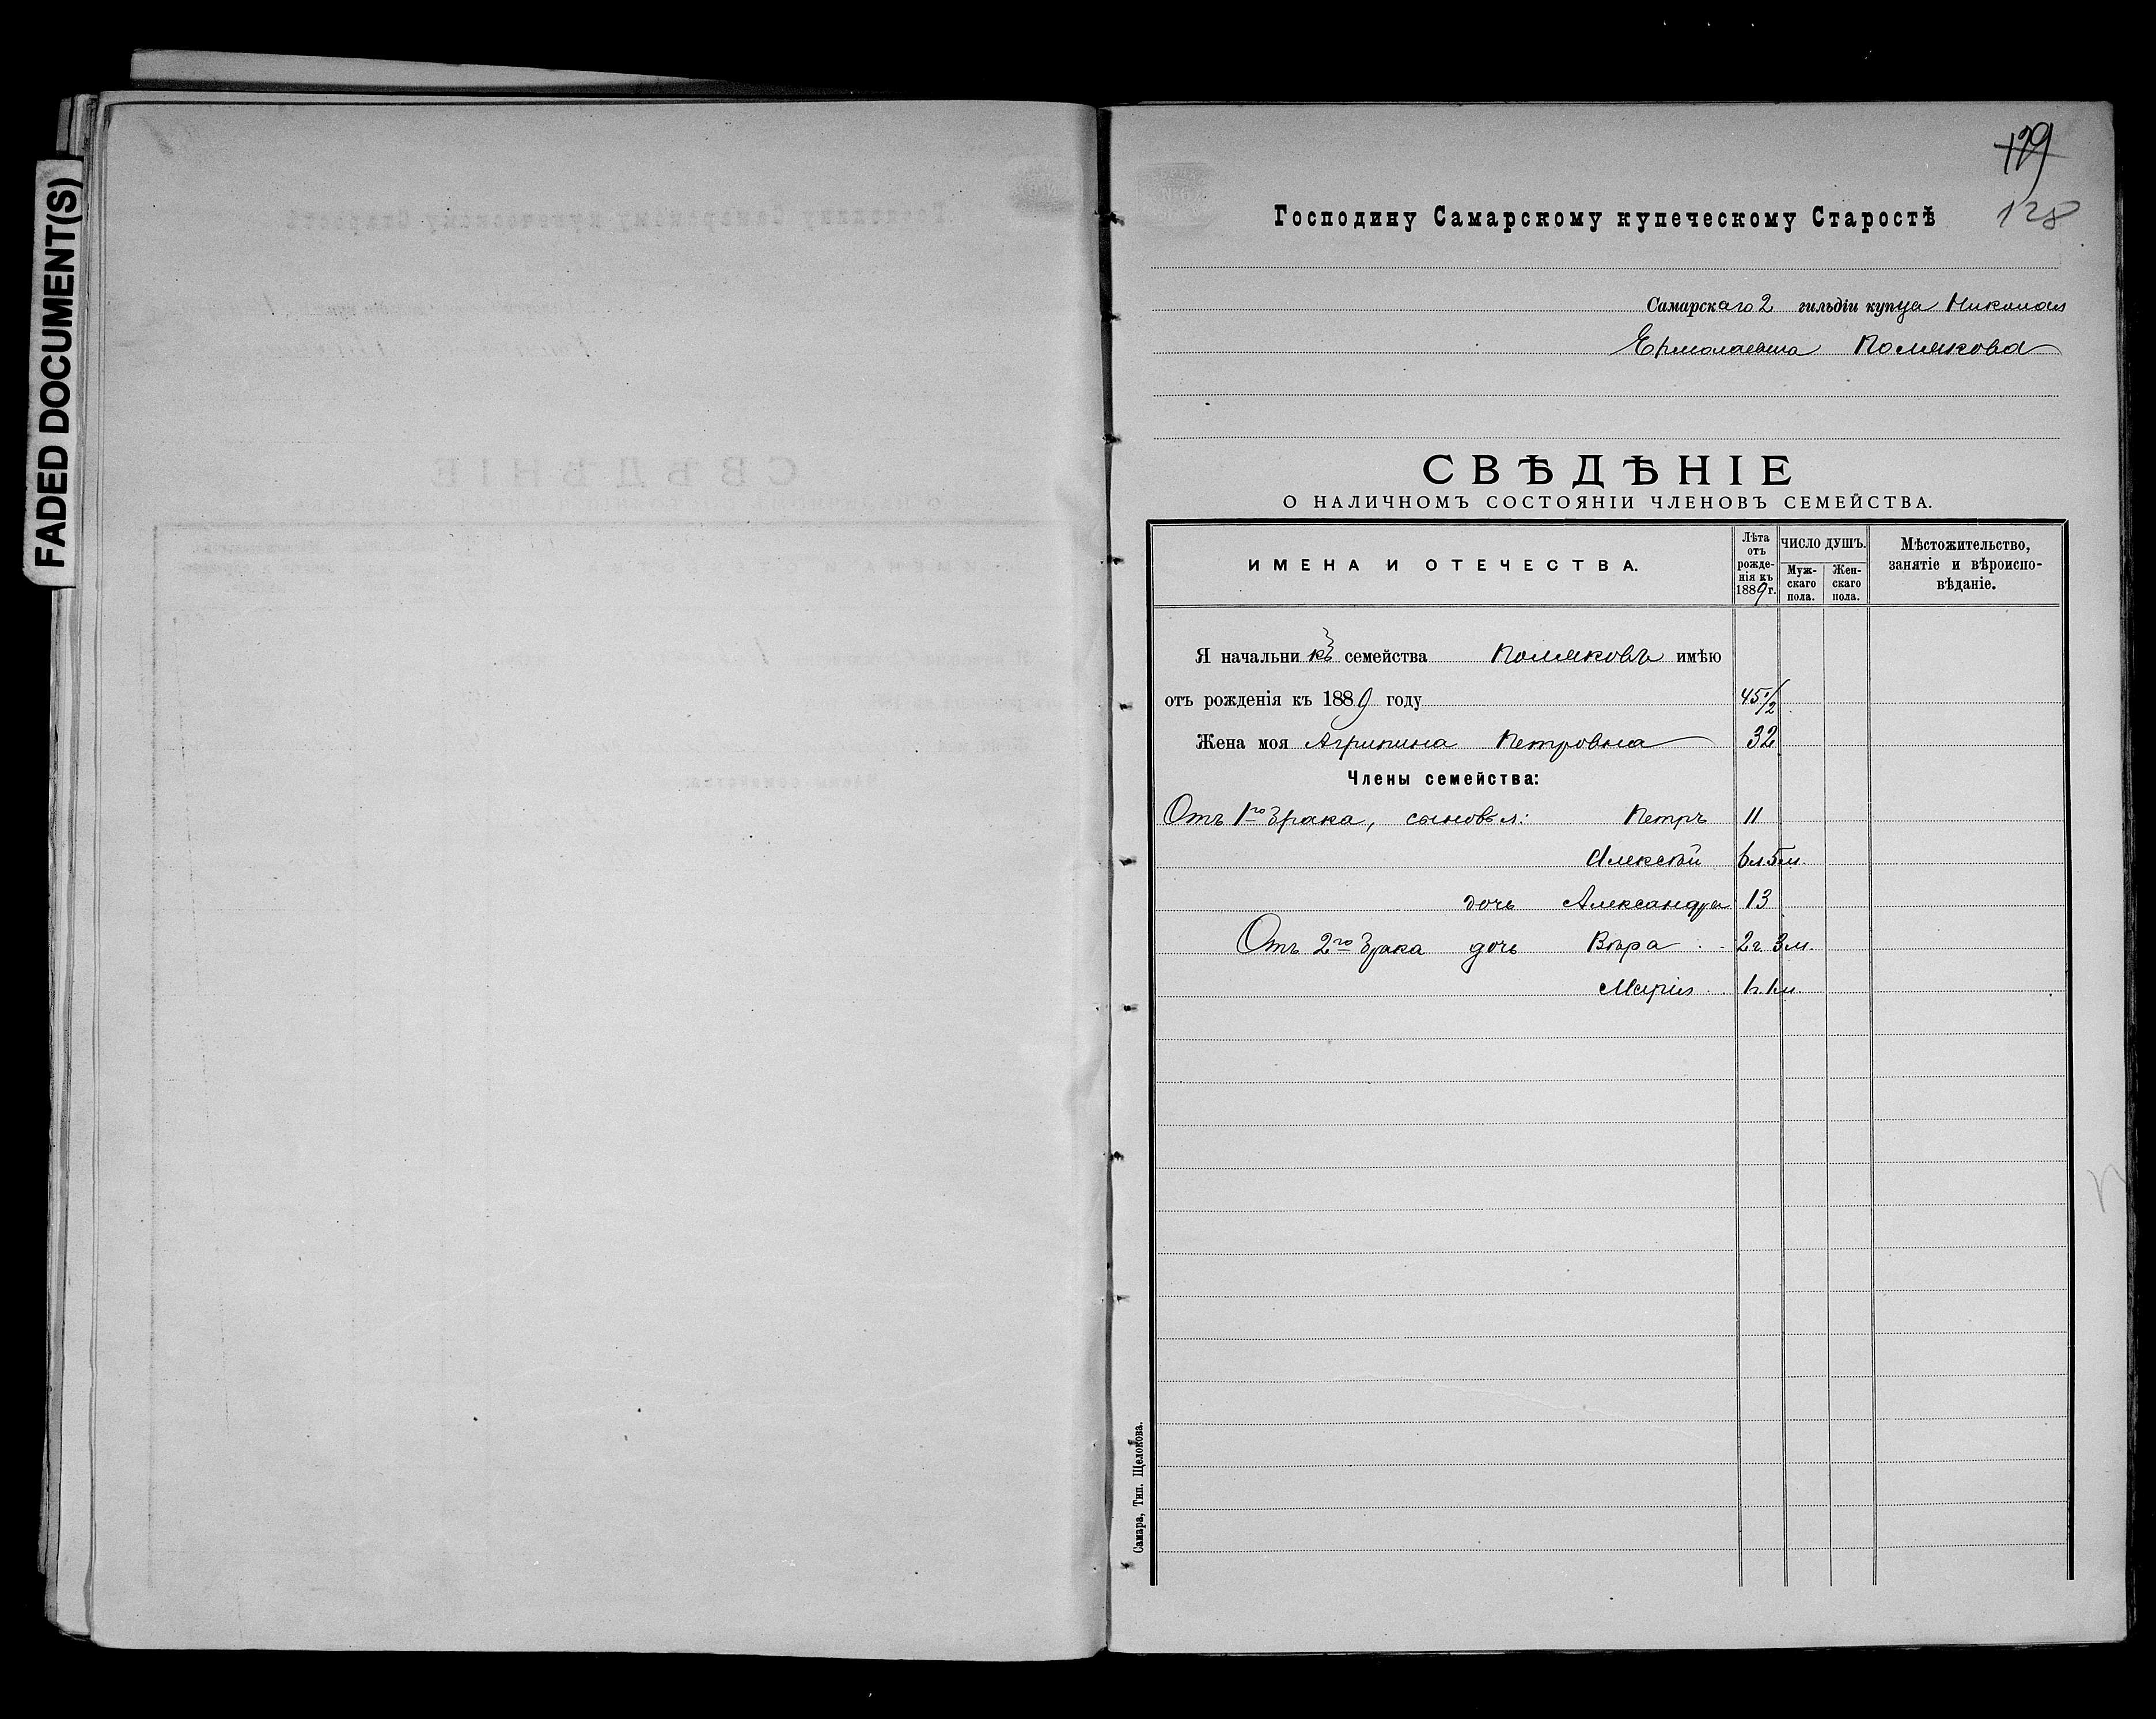 FADED DOCUMENT(S)
129
128
Господину Самарскому купеческому Старостѣ
Самарскаго 2 гильдіи купца Николая
Ермолаевича Полякова
СВѢДѢНІЕ
О НАЛИЧНОМЪ СОСТОЯНІИ ЧЛЕНОВЪ СЕМЕЙСТВА.
ИМЕНА И ОТЕЧЕСТВА.
Лѣта отъ рожденія къ 1889 г.
ЧИСЛО ДУШЪ.
Мужскаго пола.
Женскаго пола.
Мѣстожительство, занятіе и вѣроисповѣданіе.
Я начальникъ семейства Поляковъ имѣю
отъ рожденія къ 1889 году 45 1/2
Жена моя Агрипина Петровна 32
Члены семейства:
Отъ 1го брака, сыновья: Петръ 11
Алексѣй 6 л. 5 м.
дочь Александра 13
Отъ 2го брака дочь Вѣра 2 г. 3 м.
Марія 1 г. 1 м.
Самара, Тип. Щелокова.